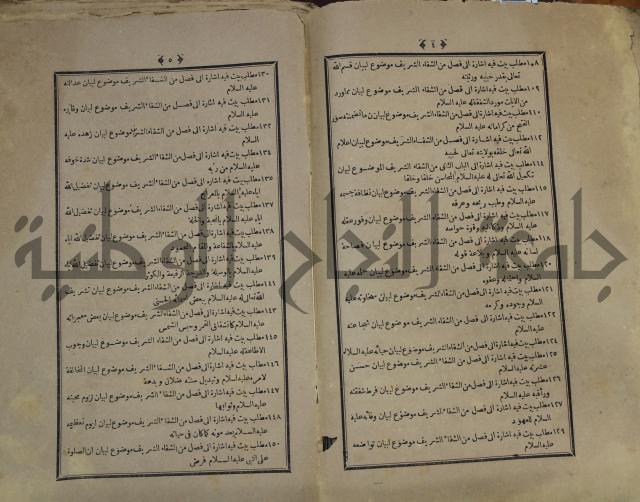 ﴿٤﴾
١٠٨ مطلب بيت فيه اشارة الى فصل من الشفاء الشريف موضوع لبيان قسم الله
تعالى بقدر حبيبه ورتبته
١٠٩ مطلب بيت فيه اشارة الى فصل من الشفاء الشريف موضوع لبيان ماورد
من الايات مورد الشفقة له عليه السلام
١١٠ مطلب بيت فيه اشارة الى فصل من الشفاء الشريف موضوع لبيان ما تضمنته سورة
الفتح من كراماته عليه السلام
١١٢ مطلب بيت فيه اشارة الى فصل من الشفاء الشريف موضوع لبيان اعلام
الله تعالى خلقه بولايته تعالى لحبيبه
١١٤ مطلب بيت فيه اشارة الى الباب الثانى من الشفاء الشريف الموضوع لبيان
تكميل الله تعالى له عليه السلام المحاسن خلقا وخلقا
١١٥ مطلب بيت فيه اشارة الى فصل من الشفاء الشريف موضوع لبيان نظافة جسمه
عليه السلام وطيب ريحه وعرقه
١١٧ مطلب بيت فيه اشارة الى فصل من الشفاء الشريف موضوع لبيان وفور عقله
عليه السلام وذكائه وقوة حواسه
١١٨ مطلب بيت فيه اشارة الى فصل من الشفاء الشريف موضوع لبيان فصاحة
لسانه عليه السلام وبلاغة قوله
١٢٠ مطلب بيت فيه اشارة الى فصل من الشفاء الشريف موضوع لبيان حلمه عليه
السلام واحتماله وعفوه
١٢١ مطلب بيت فيه اشارة الى فصل من الشفاء الشريف موضوع لبيان سخاوته عليه
السلام وجوده وكرمه
١٢٢ مطلب بيت فيه اشارة الى فصل من الشفاء الشريف موضوع لبيان شجاعته
عليه السلام
١٢٤ مطلب بيت فيه اشارة الى فصل من الشفاء الشريف موضوع لبيان حيائه عليه السلام
١٢٥ مطلب بيت فيه اشارة الى فصل من الشفاء الشريف موضوع لبيان حسن
عشرته عليه السلام
١٢٦ مطلب بيت فيه اشارة الى فصل من الشفاء الشريف موضوع لبيان فرط شفقته
ورأفته عليه السلام
١٢٧ مطلب بيت فيه اشارة الى فصل من الشفاء الشريف موضوع لبيان وفائه عليه
السلام للعهود
١٢٩ مطلب بيت فيه اشارة الى فصل من الشفاء الشريف موضوع لبيان تواضعه
عليه السلام
﴿٥﴾
١٣٠ مطلب بيت فيه اشارة الى فصل من الشفاء الشريف موضوع لبيان عدالته
عليه السلام
١٣١ مطلب بيت فيه اشارة الى فصل من الشفاء الشريف موضوع لبيان وقاره
عليه السلام
١٣٢ مطلب بيت فيه اشارة الى فصل من الشفاء الشريف موضوع لبيان زهده عليه
السلام
١٣٤ مطلب بيت فيه اشارة الى فصل من الشفاء الشريف موضوع لبيان شدة خوفه
عليه السلام من ربه
١٣٥ مطلب بيت فيه اشارة الى فصل من الشفاء الشريف موضوع لبيان تفضيل الله
اياه عليه السلام بالمعراج
١٣٧ مطلب بيت فيه اشارة الى فصل من الشفاء الشريف موضوع لبيان تفضيل الله
اياه عليه السلام بالمحبة والخلة
١٣٨ مطلب بيت فيه اشارة الى فصل من الشفاء الشريف موضوع لبيان تفضيل الله اياه
عليه السلام بالشفاعة والمقام
١٣٩ مطلب بيت فيه اشارة الى فصل من الشفاء الشريف موضوع لبيان تفضيل الله
عليه السلام بالوسيلة والدرجة الرفيعة والكوثر
١٤١ مطلب بيت فيه اشارة الى فصل من الشفاء الشريف موضوع لبيان تشريف
الله تعالى له عليه السلام ببعض اسمائه الحسنى
١٤٣ مطلب بيت فيه اشارة الى فصل من الشفاء الشريف موضوع لبيان بعض معجزاته
عليه السلام كانشقاق القمر وحبس الشمس
١٤٥ مطلب بيت فيه اشارة الى فصل من الشفاء الشريف موضوع لبيان وجوب
الاطاعة له عليه السلام
١٤٦ مطلب بيت فيه اشارة الى فصل من الشفاء الشريف موضوع لبيان ان المخالفة
لامره عليه السلام وتبديل سنته ضلال وبدعة
١٤٧ مطلب بيت فيه اشارة الى فصل من الشفاء الشريف موضوع لبيان لزوم محبته
عليه السلام وثوابها
١٤٨ مطلب بيت فيه اشارة الى فصل من الشفاء الشريف موضوع لبيان لزوم تعظيمه
عليه السلام بعد موته كما كان فى حياته
١٥٠ مطلب بيت فيه اشارة الى فصل من الشفاء الشريف موضوع لبيان ان الصلوة
على النبى عليه السلام فرض
جامعة النجاح الوطنية